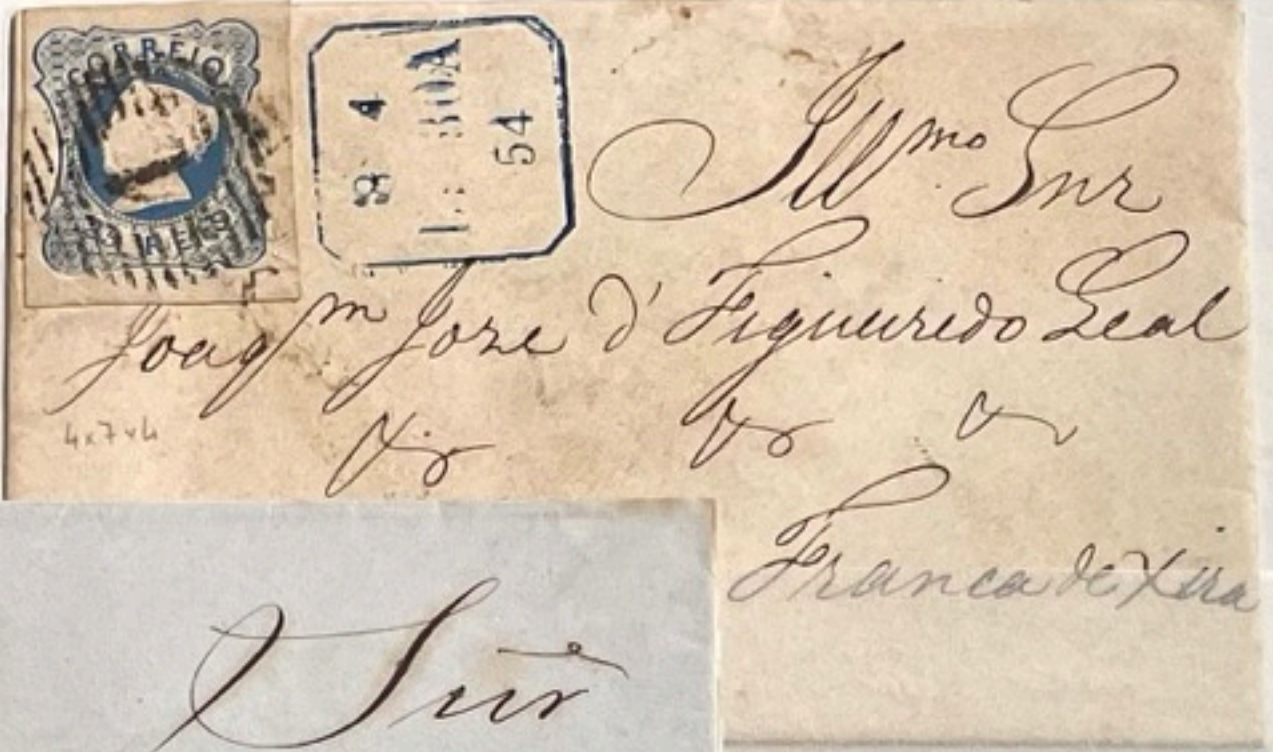 CORREIO
REIS
8 4
LISBOA
54
Illmo Snr
Joaqm Joze d' Figueiredo Leal
4x7x4
Franca de Xira
Snr